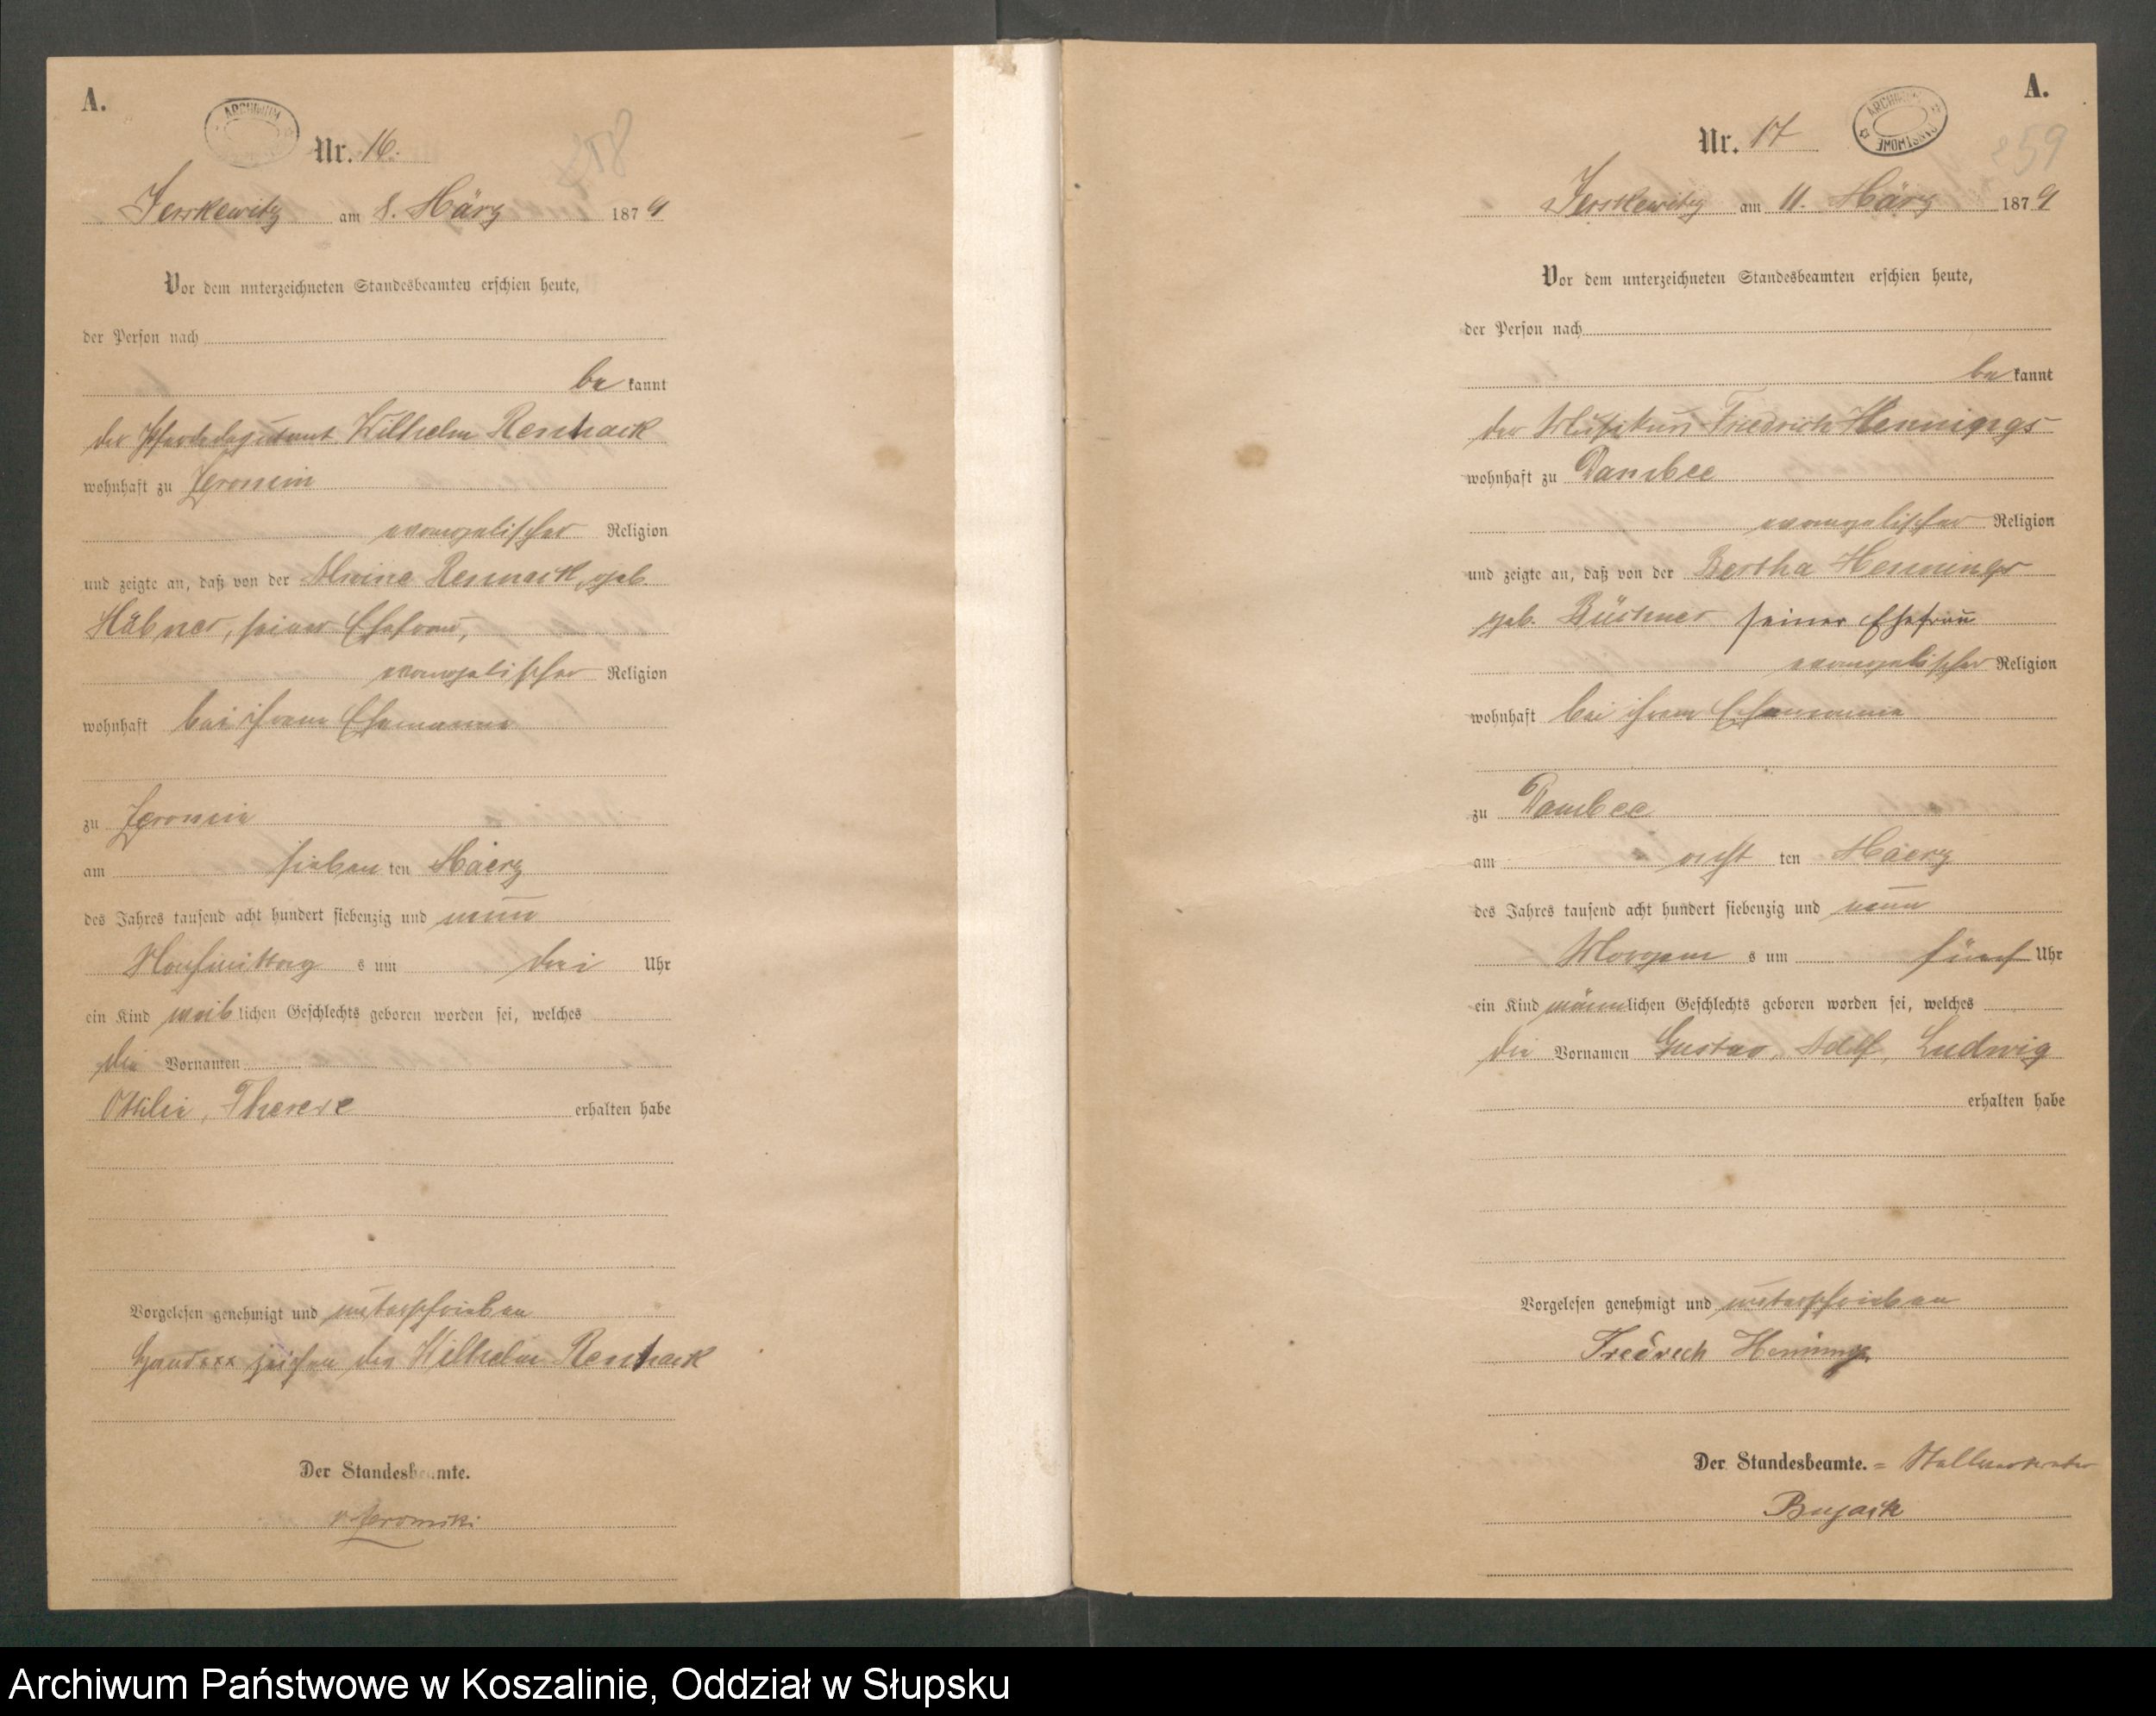 A.
ARCHIWUM
258
Nr. 16.
Jerskewitz am 8. März 1879
Vor dem unterzeichneten Standesbeamten erschien heute,
der Person nach
be kannt
der Wilhelm Renhack
wohnhaft zu Zgromin
evangelischer Religion
und zeigte an, daß von der Alwine Renhack, geb.
Hübner, seiner Ehefrau,
evangelischer Religion
wohnhaft bei ihrem Ehemanne
zu Zgromin
am sieben ten Maerz
des Jahres tausend acht hundert siebenzig und neun
Nachmittag s um drei Uhr
ein Kind weib lichen Geschlechts geboren worden sei, welches
die Vornamen
Ottilie, Therese erhalten habe
Vorgelesen genehmigt und unterschrieben
Handxxx zeichen des Wilhelm Renhack
Der Standesbeamte.
A.
ARCHIWUM PAŃSTWOWE
259
Nr. 17
Jerskewitz am 11. März 1879
Vor dem unterzeichneten Standesbeamten erschien heute,
der Person nach
be kannt
der Musikus Friedrich Hennings
wohnhaft zu Dambee
evangelischer Religion
und zeigte an, daß von der Bertha Hennings
geb. Büchner seiner Ehefrau
evangelischer Religion
wohnhaft bei ihrem Ehemanne
zu Dambee
am acht ten Maerz
des Jahres tausend acht hundert siebenzig und neun
Morgen s um fünf Uhr
ein Kind männlichen Geschlechts geboren worden sei, welches
die Vornamen Gustav, Adolf, Ludwig
erhalten habe
Vorgelesen genehmigt und unterschrieben
Fredrech Hennings
Der Standesbeamte. = Stellvertreter
Bujack
Archiwum Państwowe w Koszalinie, Oddział w Słupsku